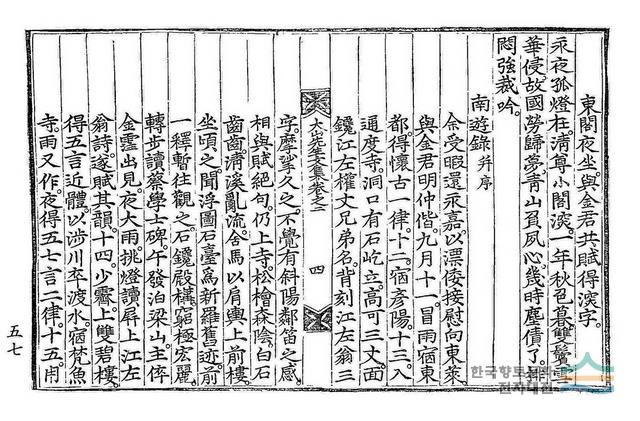 東閣夜坐。與金君共賦得深字。
永夜孤燈在。清尊小閣深。一年秋色暮。雙鬢雪
華侵。故國勞歸夢。靑山負夙心。幾時塵債了。排
悶強裁吟。
南遊錄 幷序
余受暇還永嘉。以漂倭接慰向東萊。
與金君明仲偕。九月十一。冒雨宿東
都。得懷古一律。十二。宿彦陽。十三。入
通度寺。洞口有石屹立。高可三丈。面
鑱江左權丈兄弟名。背刻江左翁三
大山先生文集卷之二 四
字。摩挲久之。不覺有斜陽鄰笛之感。
相與賦絶句。仍上寺。松檜森陰。白石
齒齒。淸溪亂流。舍馬以肩輿上前樓。
坐頃之。聞浮圖石臺爲新羅舊迹。前
一釋暫往觀之。石鑱殿構窮極宏麗。
轉步讀蔡學士碑。午發泊梁山。主倅
金出見。夜大雨挑燈。讀屛上江左
翁詩。遂賦其韻。十四。少霽。上雙碧樓。
得五言近體。以涉川卒渡水。宿梵魚
寺。雨又作。夜得五七言二律。十五。用
五七
한국향토문화
전자대전